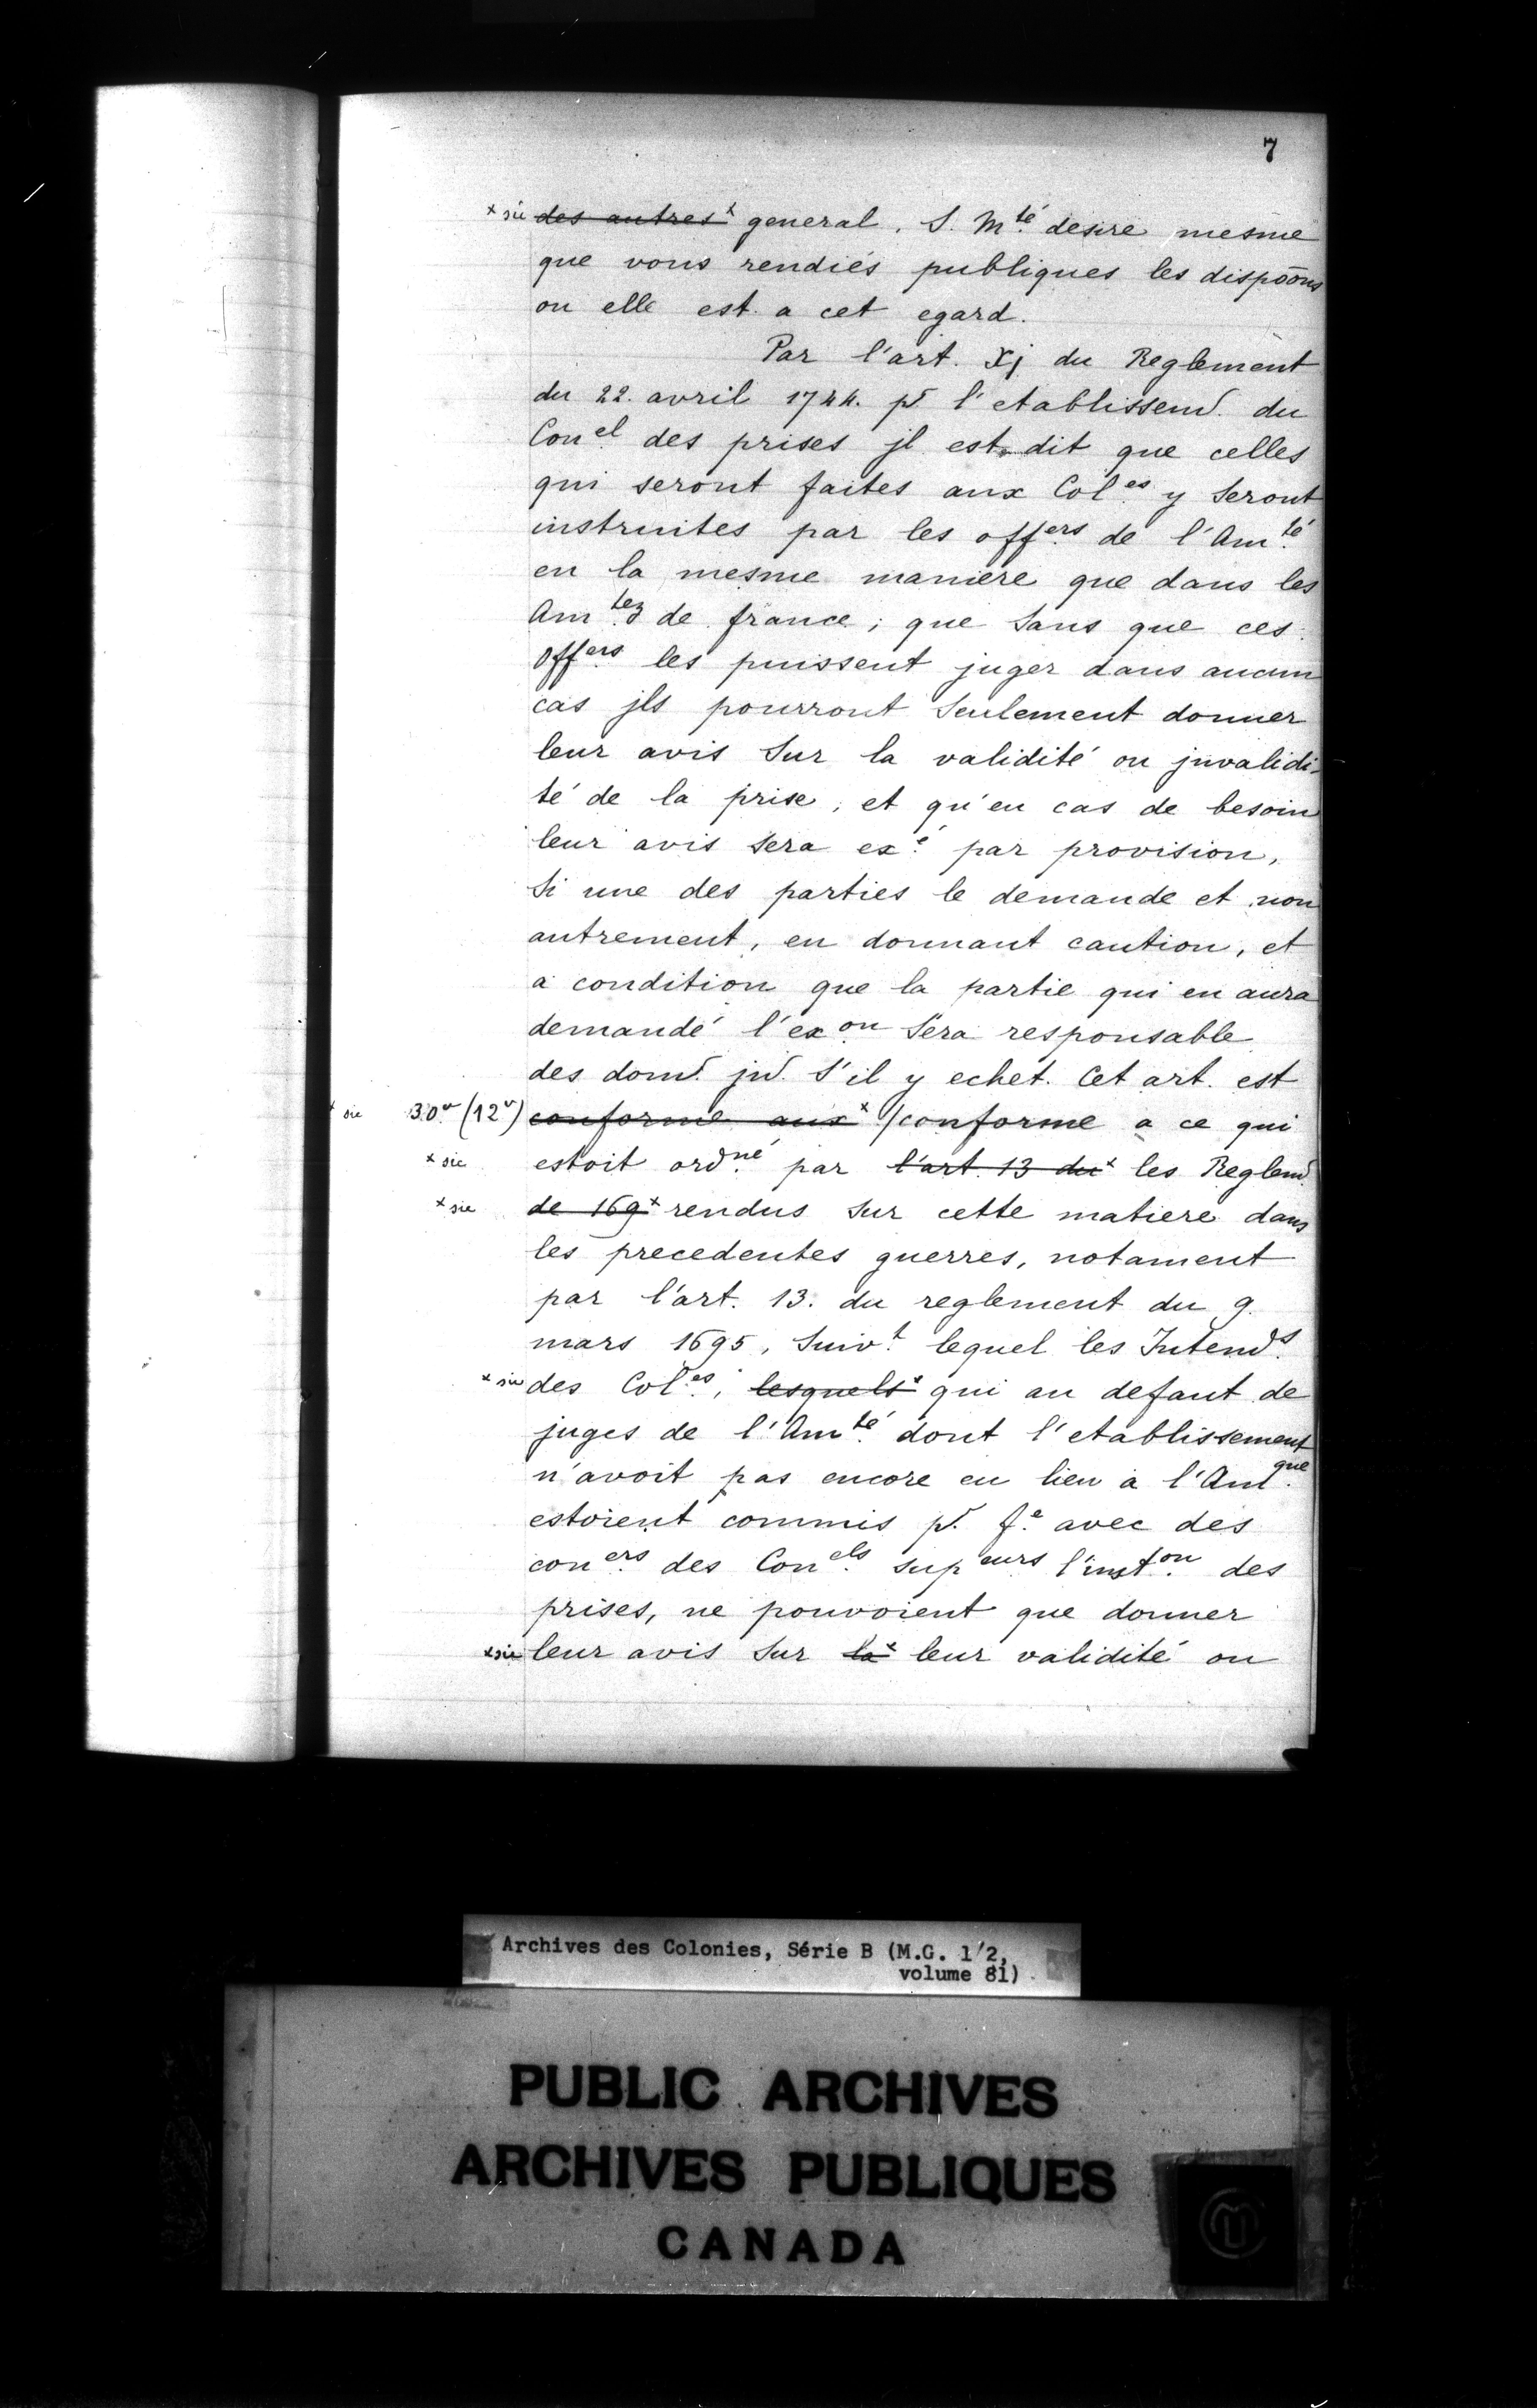 7
x sic des autres x general. S. Mté desire mesme
que vous rendiés publiques les dispōōns
ou elle est a cet egard.
Par l'art. Xj du Reglement
du 22. avril 1744. pr l'etablissemt. du
Conel des prises jl est dit que celles
qui seront faites aux Coles y seront
instruites par les offers de l'Amté
en la mesme maniere que dans les
Amtez de france; que sans que ces
offers les puissent juger dans aucun
cas jls pourront seulement donner
leur avis sur la validité ou jnvalidi-
té de la prise, et qu'en cas de besoin
leur avis sera exé par provision,
si une des parties le demande et non
autrement, en donnant caution, et
a condition que la partie qui en aura
demandé l'exon sera responsable
des dom. jnt. s'il y echet. Cet art. est
x sic 30v (12v) conforme aux x /conforme a ce qui
x sic estoit ordné par l'art. 13 du x les Reglemt
x sic de 169 x rendus sur cette matiere dans
les precedentes guerres, notament
par l'art. 13. du reglement du 9.
mars 1695, suivt lequel les Intends
x sic des Coles, lesquels x qui au defaut de
juges de l'Amté dont l'etablissement
n'avoit pas encore eu lieu a l'Amque
estoient commis pr. fe avec des
coners des Conels supeurs l'inston des
prises, ne pouvoient que donner
x sic leur avis sur la x leur validité ou
Archives des Colonies, Série B (M.G. 1'2,
volume 81)
PUBLIC ARCHIVES
ARCHIVES PUBLIQUES
CANADA